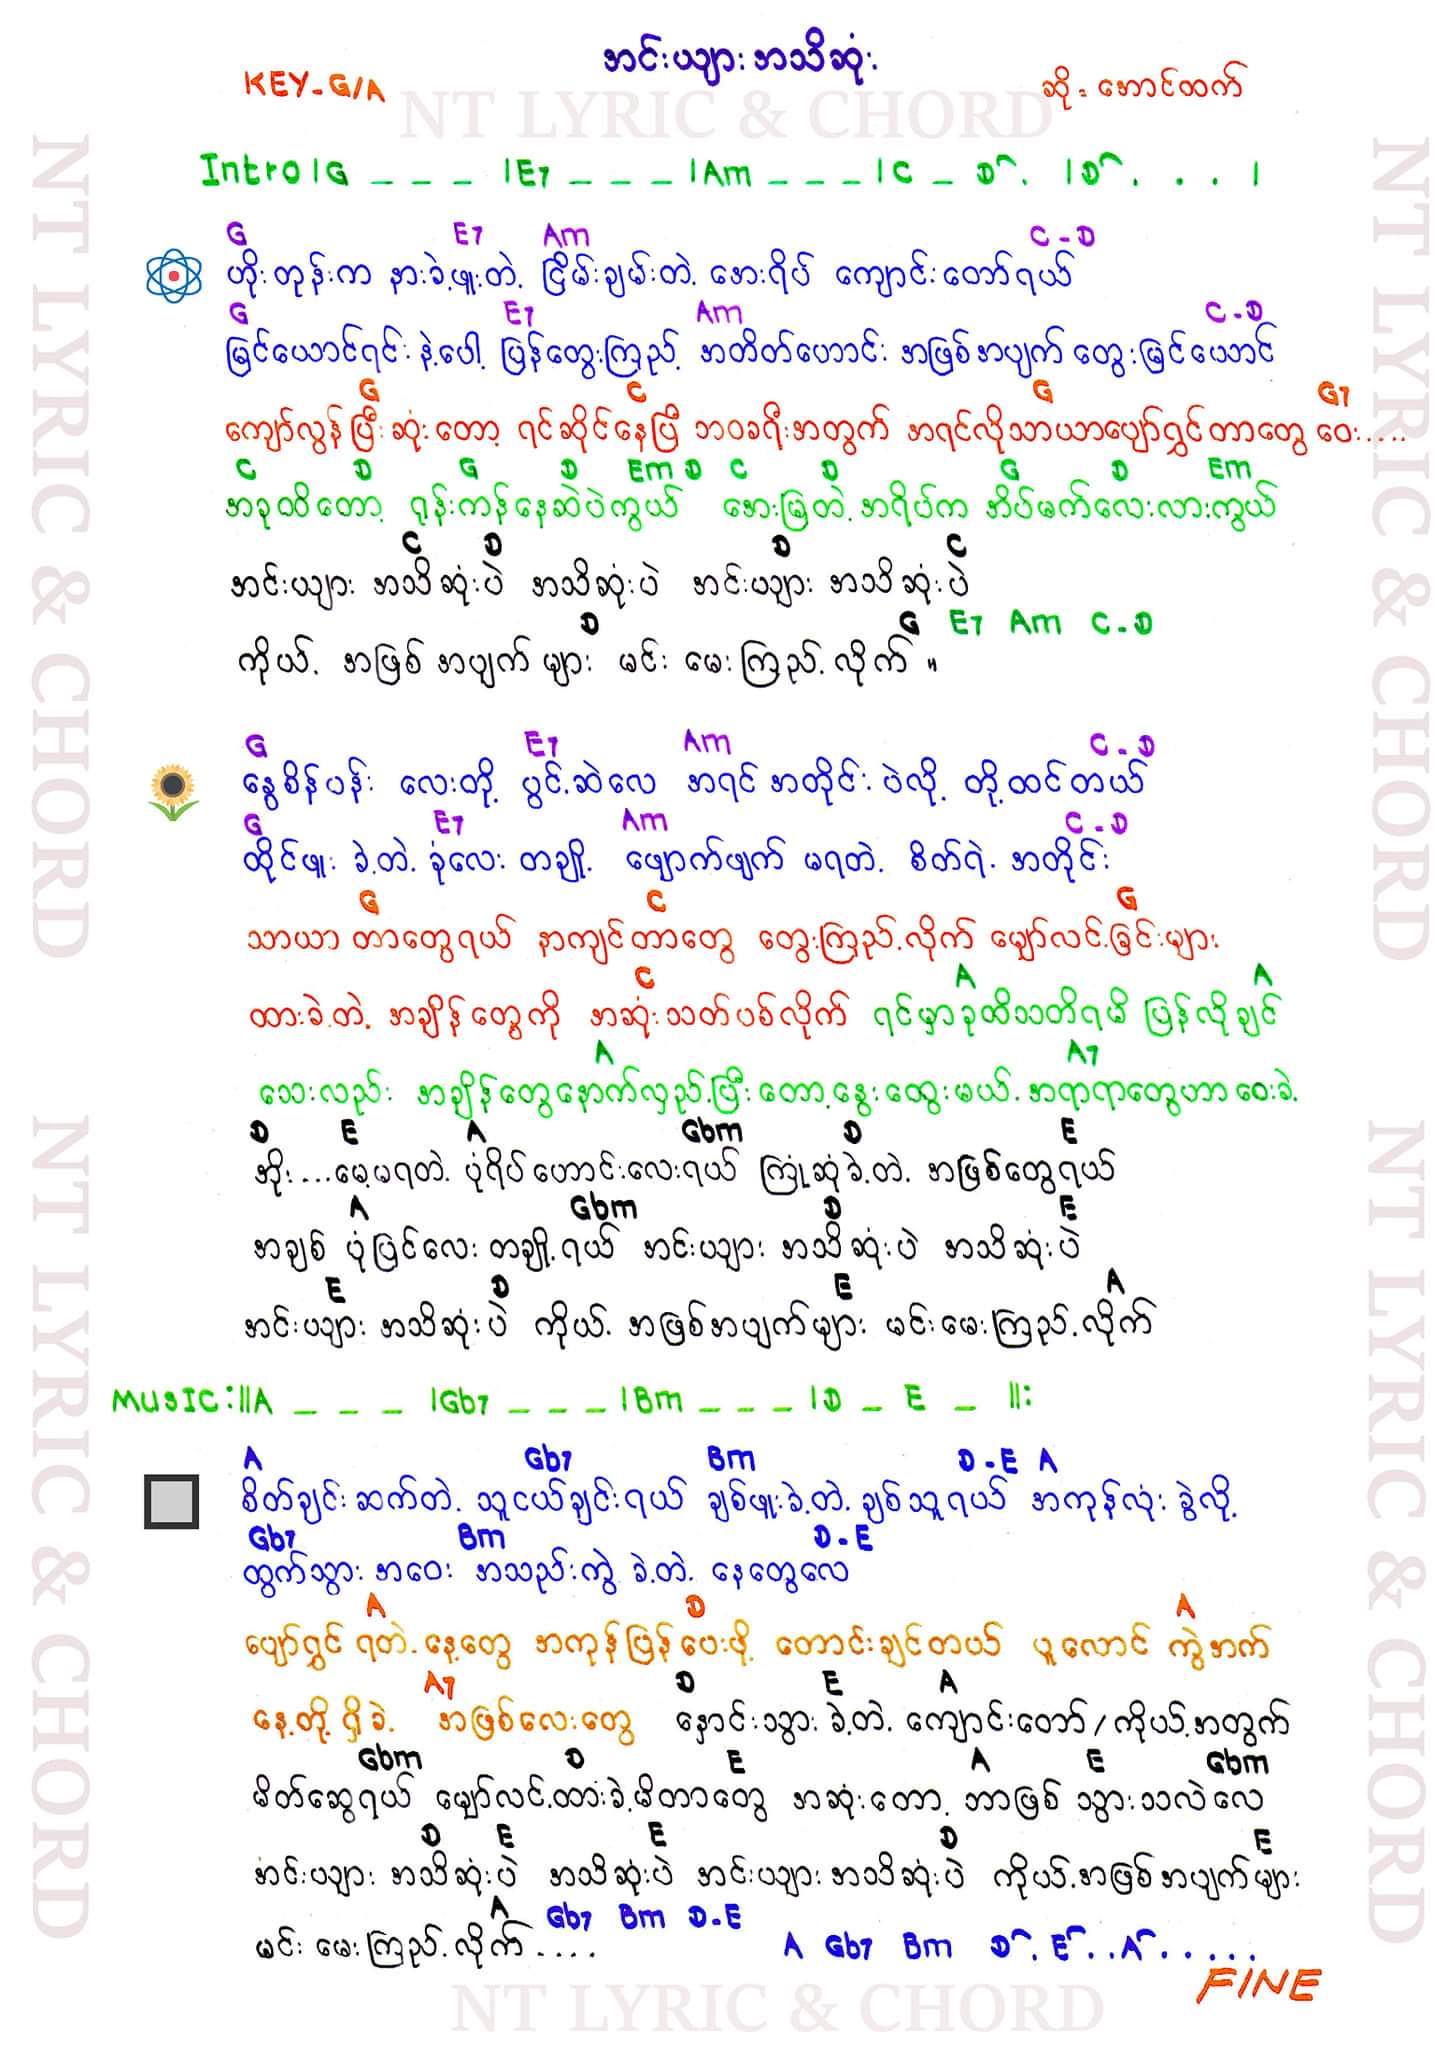 အင်းယျားအသိဆုံး
KEY-G/A
ဆို = အောင်ထက်
NT LYRIC & CHORD
Intro |G _ _ _ |E7 _ _ _ |Am _ _ _ |C _ D . |D . . . |
G E7 Am C-D
ဟိုးတုန်းက နားခဲ့ဖူးတဲ့ ငြိမ်းချမ်းတဲ့ အေးရိပ် ကျောင်းတော်ရယ်
G E7 Am C-D
မြင်ယောင်ရင်းနဲ့ပေါ့ ပြန်တွေးကြည့် အတိတ်ဟောင်း အဖြစ်အပျက်တွေးမြင်ယောင်
G C G G7
ကျော်လွန်ပြီးဆုံးတော့ ရင်ဆိုင်နေပြီ ဘဝခရီးအတွက် အရင်လိုသာယာပျော်ရွှင်တာတွေ ဝေး....
C D G D Em D C D G D Em
အခုထိတော့ ရုန်းကန်နေဆဲပဲကွယ် အေးမြတဲ့အရိပ်က အိပ်မက်လေးလားကွယ်
C D D C
အင်းယျား အသိဆုံးပဲ အသိဆုံးပဲ အင်းယျား အသိဆုံးပဲ
D G E7 Am C-D
ကိုယ့် အဖြစ်အပျက်များ မင်း မေးကြည့်လိုက် ။
G E7 Am C-D
နွေစိန်ပန်း လေးတို့ ပွင့်ဆဲလေ အရင်အတိုင်းပဲလို့ တို့ထင်တယ်
G E7 Am C-D
ထိုင်ဖူး ခဲ့တဲ့ ခုံလေး တချို့ ဖျောက်ဖျက် မရတဲ့ စိတ်ရဲ့ အတိုင်း
G C G
သာယာ တာတွေရယ် နာကျင်တာတွေ တွေးကြည့်လိုက် မျှော်လင့်ခြင်းများ
C A A
ထားခဲ့တဲ့ အချိန်တွေကို အဆုံးသတ်ပစ်လိုက် ရင်မှာခုထိသတိရမိ ပြန်လိုချင်
A A7
သေးလည်း အချိန်တွေနောက်လှည့်ပြီးတော့နွေးထွေးမယ့်အရာရာတွေဟာ ဝေးခဲ့
D E A Gbm D E
အိုး...မေ့မရတဲ့ ပုံရိပ်ဟောင်းလေးရယ် ကြုံဆုံခဲ့တဲ့ အဖြစ်တွေရယ်
A Gbm D E
အချစ် ပုံပြင်လေး တချို့ရယ် အင်းယျား အသိဆုံးပဲ အသိဆုံးပဲ
E D E A
အင်းယျား အသိဆုံးပဲ ကိုယ့် အဖြစ်အပျက်များ မင်းမေးကြည့်လိုက်
MUSIC:||A _ _ _ |Gb7 _ _ _ |Bm _ _ _ |D _ E _ ||:
A Gb7 Bm D-E A
စိတ်ချင်းဆက်တဲ့ သူငယ်ချင်းရယ် ချစ်ဖူးခဲ့တဲ့ချစ်သူရယ် အကုန်လုံး ခွဲလို့
Gb7 Bm D-E
ထွက်သွား အဝေး အသည်းကွဲ ခဲ့တဲ့ နေ့တွေလေ
A D A
ပျော်ရွှင် ရတဲ့နေ့တွေ အကုန်ပြန်ပေးဖို့ တောင်းချင်တယ် ပူလောင် ကွဲအက်
A7 D E A
နေ့တို့ရှိခဲ့ အဖြစ်လေးတွေ နှောင်းသွားခဲ့တဲ့ ကျောင်းတော်/ကိုယ့်အတွက်
Gbm D E A E Gbm
မိတ်ဆွေရယ် မျှော်လင့်ထားခဲ့မိတာတွေ အဆုံးတော့ ဘာဖြစ် သွားသလဲလေ
D E E D E
အင်းယျား အသိဆုံးပဲ အသိဆုံးပဲ အင်းယျားအသိဆုံးပဲ ကိုယ့်အဖြစ်အပျက်များ
A Gb7 Bm D-E
မင်း မေးကြည့်လိုက် .... A Gb7 Bm D . E . . A . . . . .
FINE
NT LYRIC & CHORD
NT LYRIC & CHORD
NT LYRIC & CHORD
NT LYRIC & CHORD
NT LYRIC & CHORD